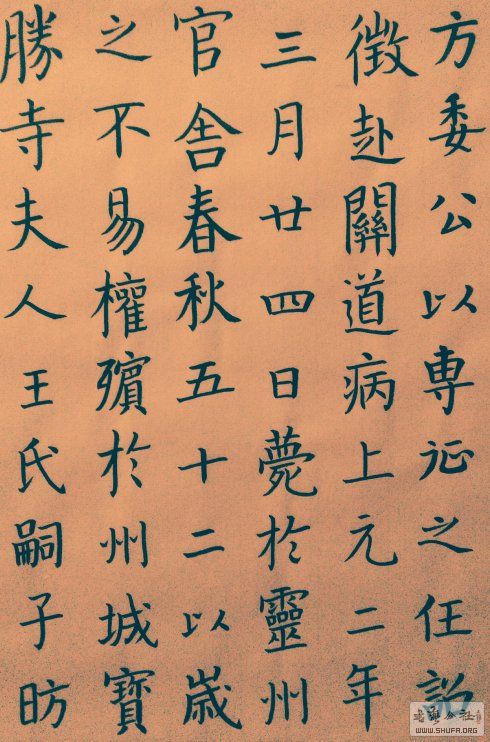 方委公以專征之任詔
徵赴闕道病上元二年
三月廿四日薨於靈州
官舍春秋五十二以歲
之不易權殯於州城寶
勝寺夫人王氏嗣子昉
WWW.SHUFA.ORG